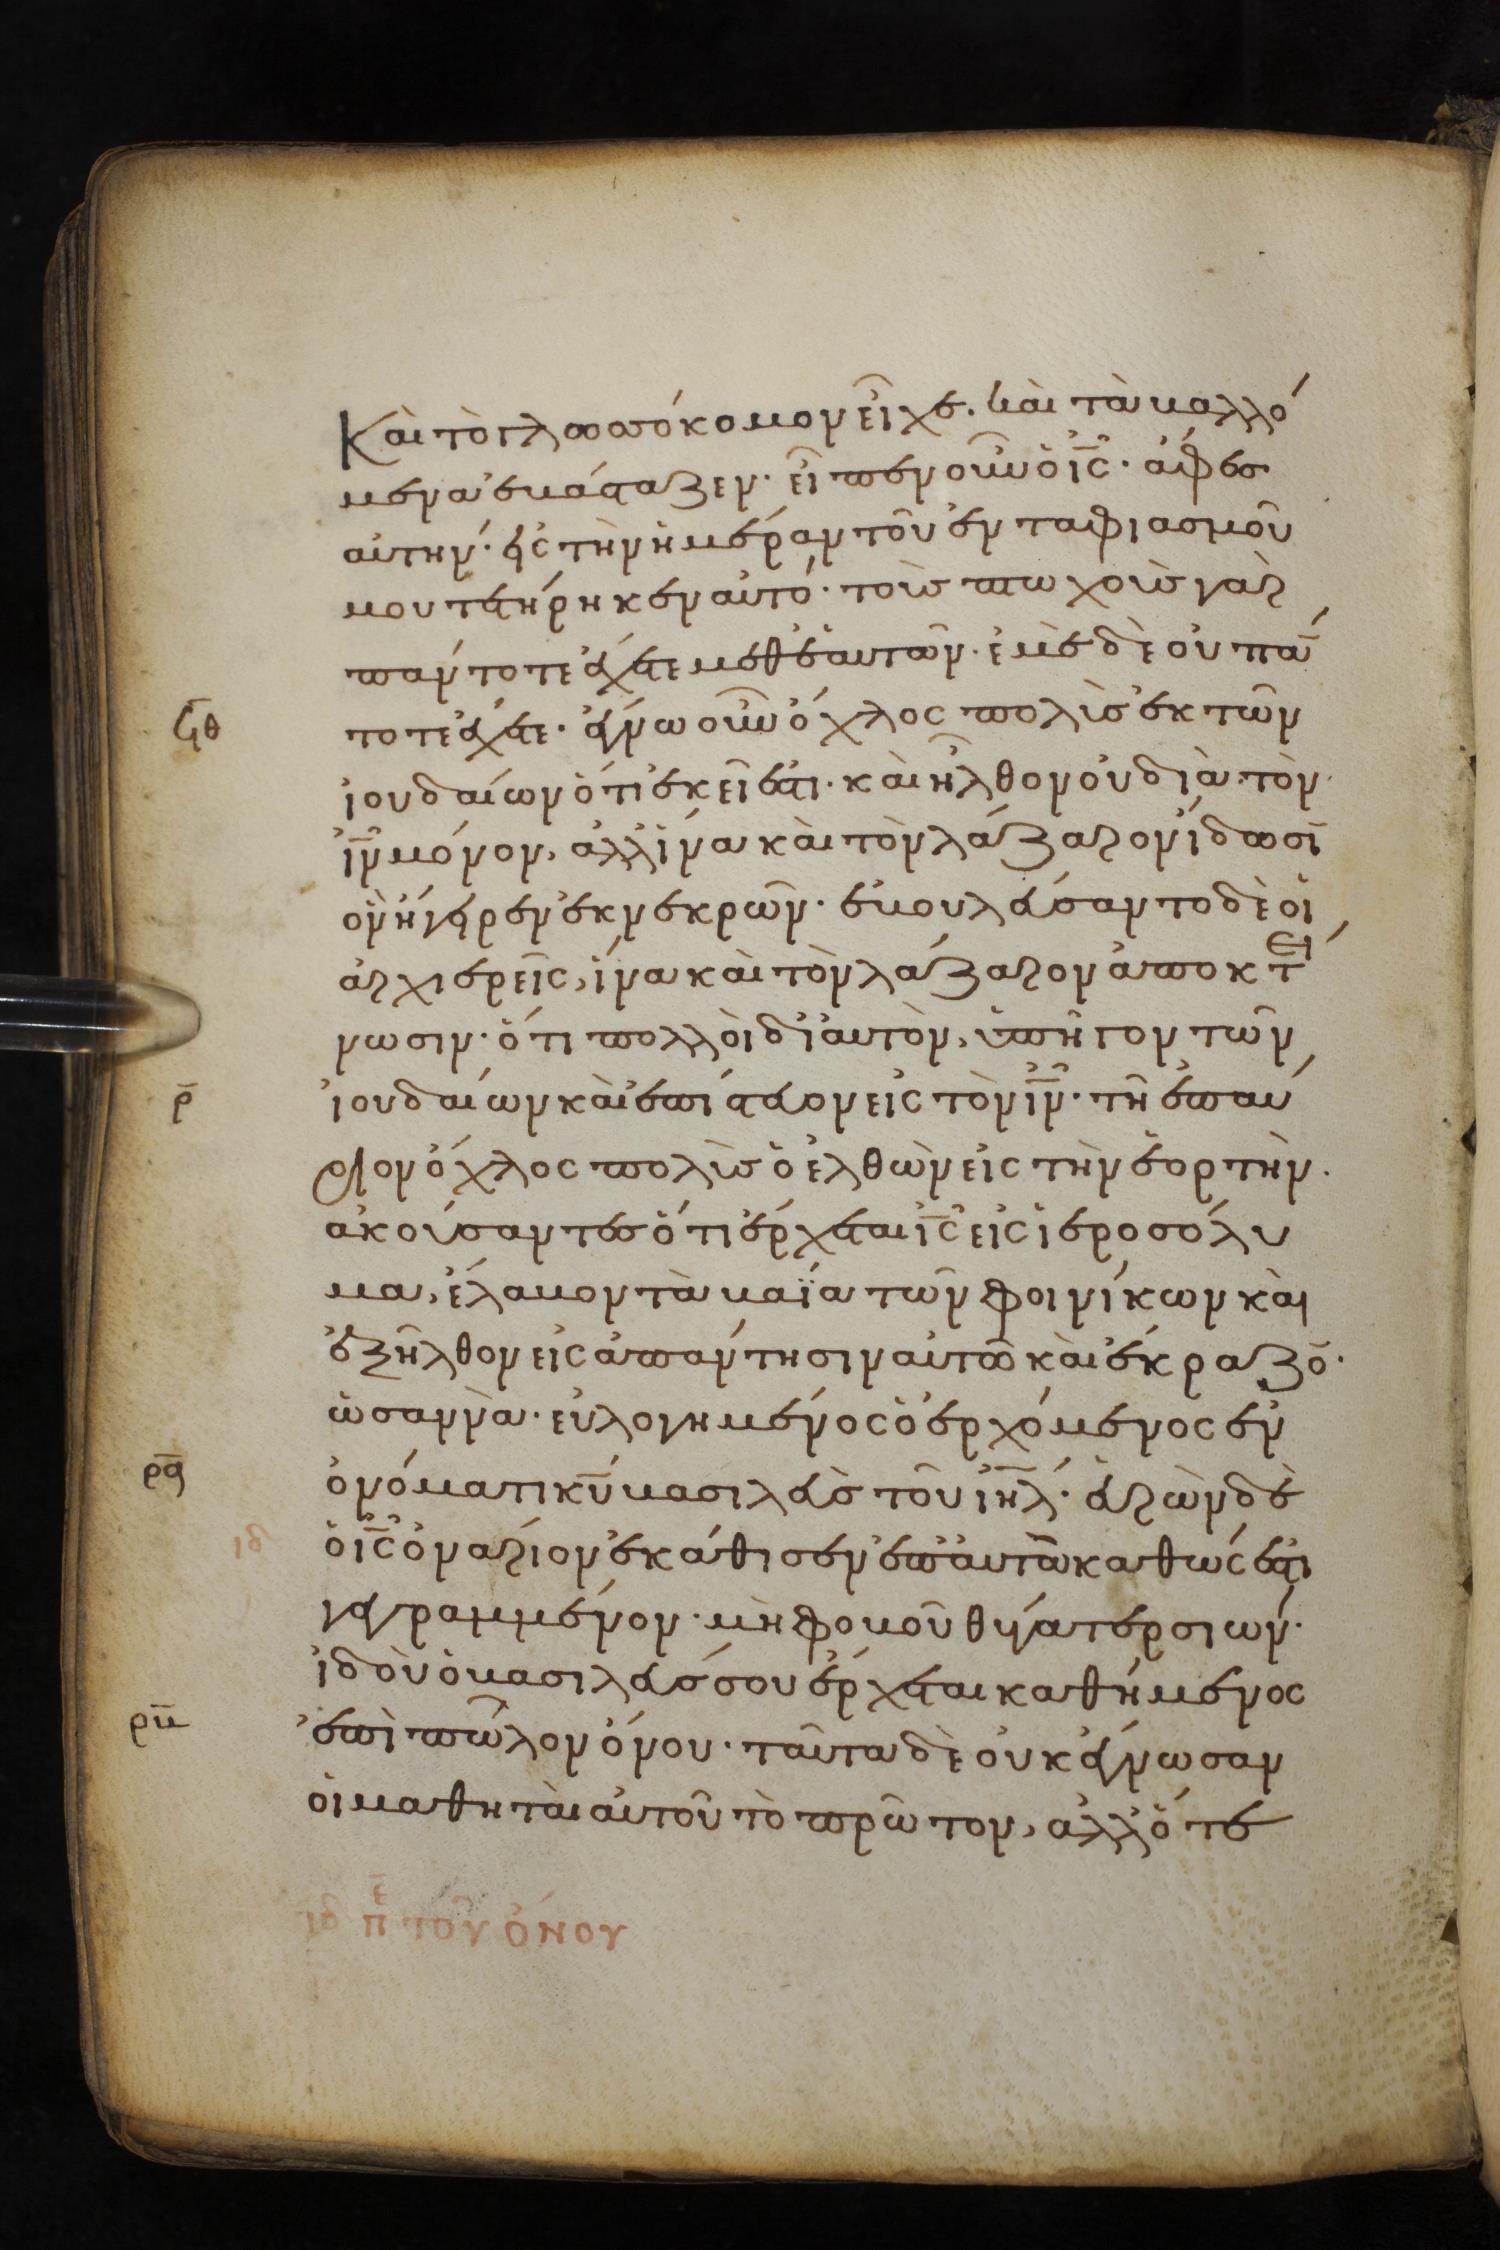 Καὶ τὸ γλωσσόκομον εἶχε. καὶ τὰ βαλλό
μενα ἐβάσταζεν· εἶπεν οὖν ὁ ις· ἄφες
αὐτήν· εἰς τὴν ἡμέραν τοῦ ἐνταφιασμοῦ
μου τετήρηκεν αὐτό· τοὺς πτωχοὺς γὰρ
πάντοτε ἔχετε μεθ' ἑαυτῶν· ἐμὲ δὲ οὐ πά
ϟθ
τοτε ἔχετε· ἔγνω οὖν ὄχλος πολὺς ἐκ τῶν
ἰουδαίων ὅτι ἐκεῖ ἐστι· καὶ ἦλθον οὐ διὰ τὸν
ιν μόνον, ἀλλ' ἵνα καὶ τὸν λάζαρον ἴδωσῑ
ὃν ἤγειρεν ἐκ νεκρῶν· ἐβουλεύσαντο δὲ οἱ
ἀρχιερεῖς, ἵνα καὶ τὸν λάζαρον ἀποκτεί
νωσιν· ὅτι πολλοὶ δι' αὐτὸν, ὑπῆγον τῶν
ρ
ἰουδαίων καὶ ἐπίστευον εἰς τὸν ιν· τῆ ἐπαύ
ριον ὄχλος πολὺς ὁ ἐλθὼν εἰς τὴν ἑορτὴν.
ἀκούσαντες ὅτι ἔρχεται ις εἰς ἱεροσόλυ
μα, ἔλαβον τὰ βαΐα τῶν φοινίκων καὶ
ἐξῆλθον εἰς ἀπάντησιν αὐτῶ καὶ ἔκραζο̄·
ὡσαννὰ· εὐλογημένος ὁ ἐρχόμενος ἐν
ρα
ὀνόματι κυ βασιλεὺς τοῦ ιηλ· εὑρὼν δὲ
ιδ
ὁ ις ὀνάριον ἐκάθισεν ἐπ' αὐτῶ καθώς ἐστι
γεγραμμένον· μὴ φοβοῦ θύγατερ σιών·
ἰδοὺ ὁ βασιλεύς σου ἔρχεται καθήμενος
ρβ
ἐπὶ πῶλον ὄνου· ταῦτα δὲ οὐκ ἔγνωσαν
οἱ μαθηταὶ αὐτοῦ τὸ πρῶτον, ἀλλ' ὅτε
ιδ πε τοῦ ὄνου